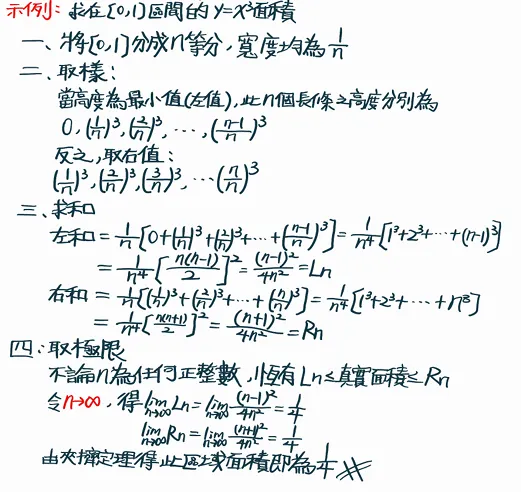 示例：求在[0,1]區間的 y=x³面積
一、將[0,1]分成n等分，寬度均為 1/n
二、取樣：
當高度為最小值(左值)，此n個長條之高度分別為
0, (1/n)³, (2/n)³, ..., (n-1/n)³
反之，取右值：
(1/n)³, (2/n)³, (3/n)³, ...(n/n)³
三、求和
左和 = 1/n[0+(1/n)³+(2/n)³+...+(n-1/n)³] = 1/n⁴[1³+2³+...+(n-1)³]
= 1/n⁴[n(n-1)/2]² = (n-1)²/4n² = Ln
右和 = 1/n[(1/n)³+(2/n)³+...+(n/n)³] = 1/n⁴[1³+2³+...+n³]
= 1/n⁴[n(n+1)/2]² = (n+1)²/4n² = Rn
四：取極限
不論n為任何正整數，恒有 Ln≤真實面積≤Rn
令n→∞，得 lim n→∞ Ln = lim n→∞ (n-1)²/4n² = 1/4
lim n→∞ Rn = lim n→∞ (n+1)²/4n² = 1/4
由夾擠定理得此區域面積即為 1/4